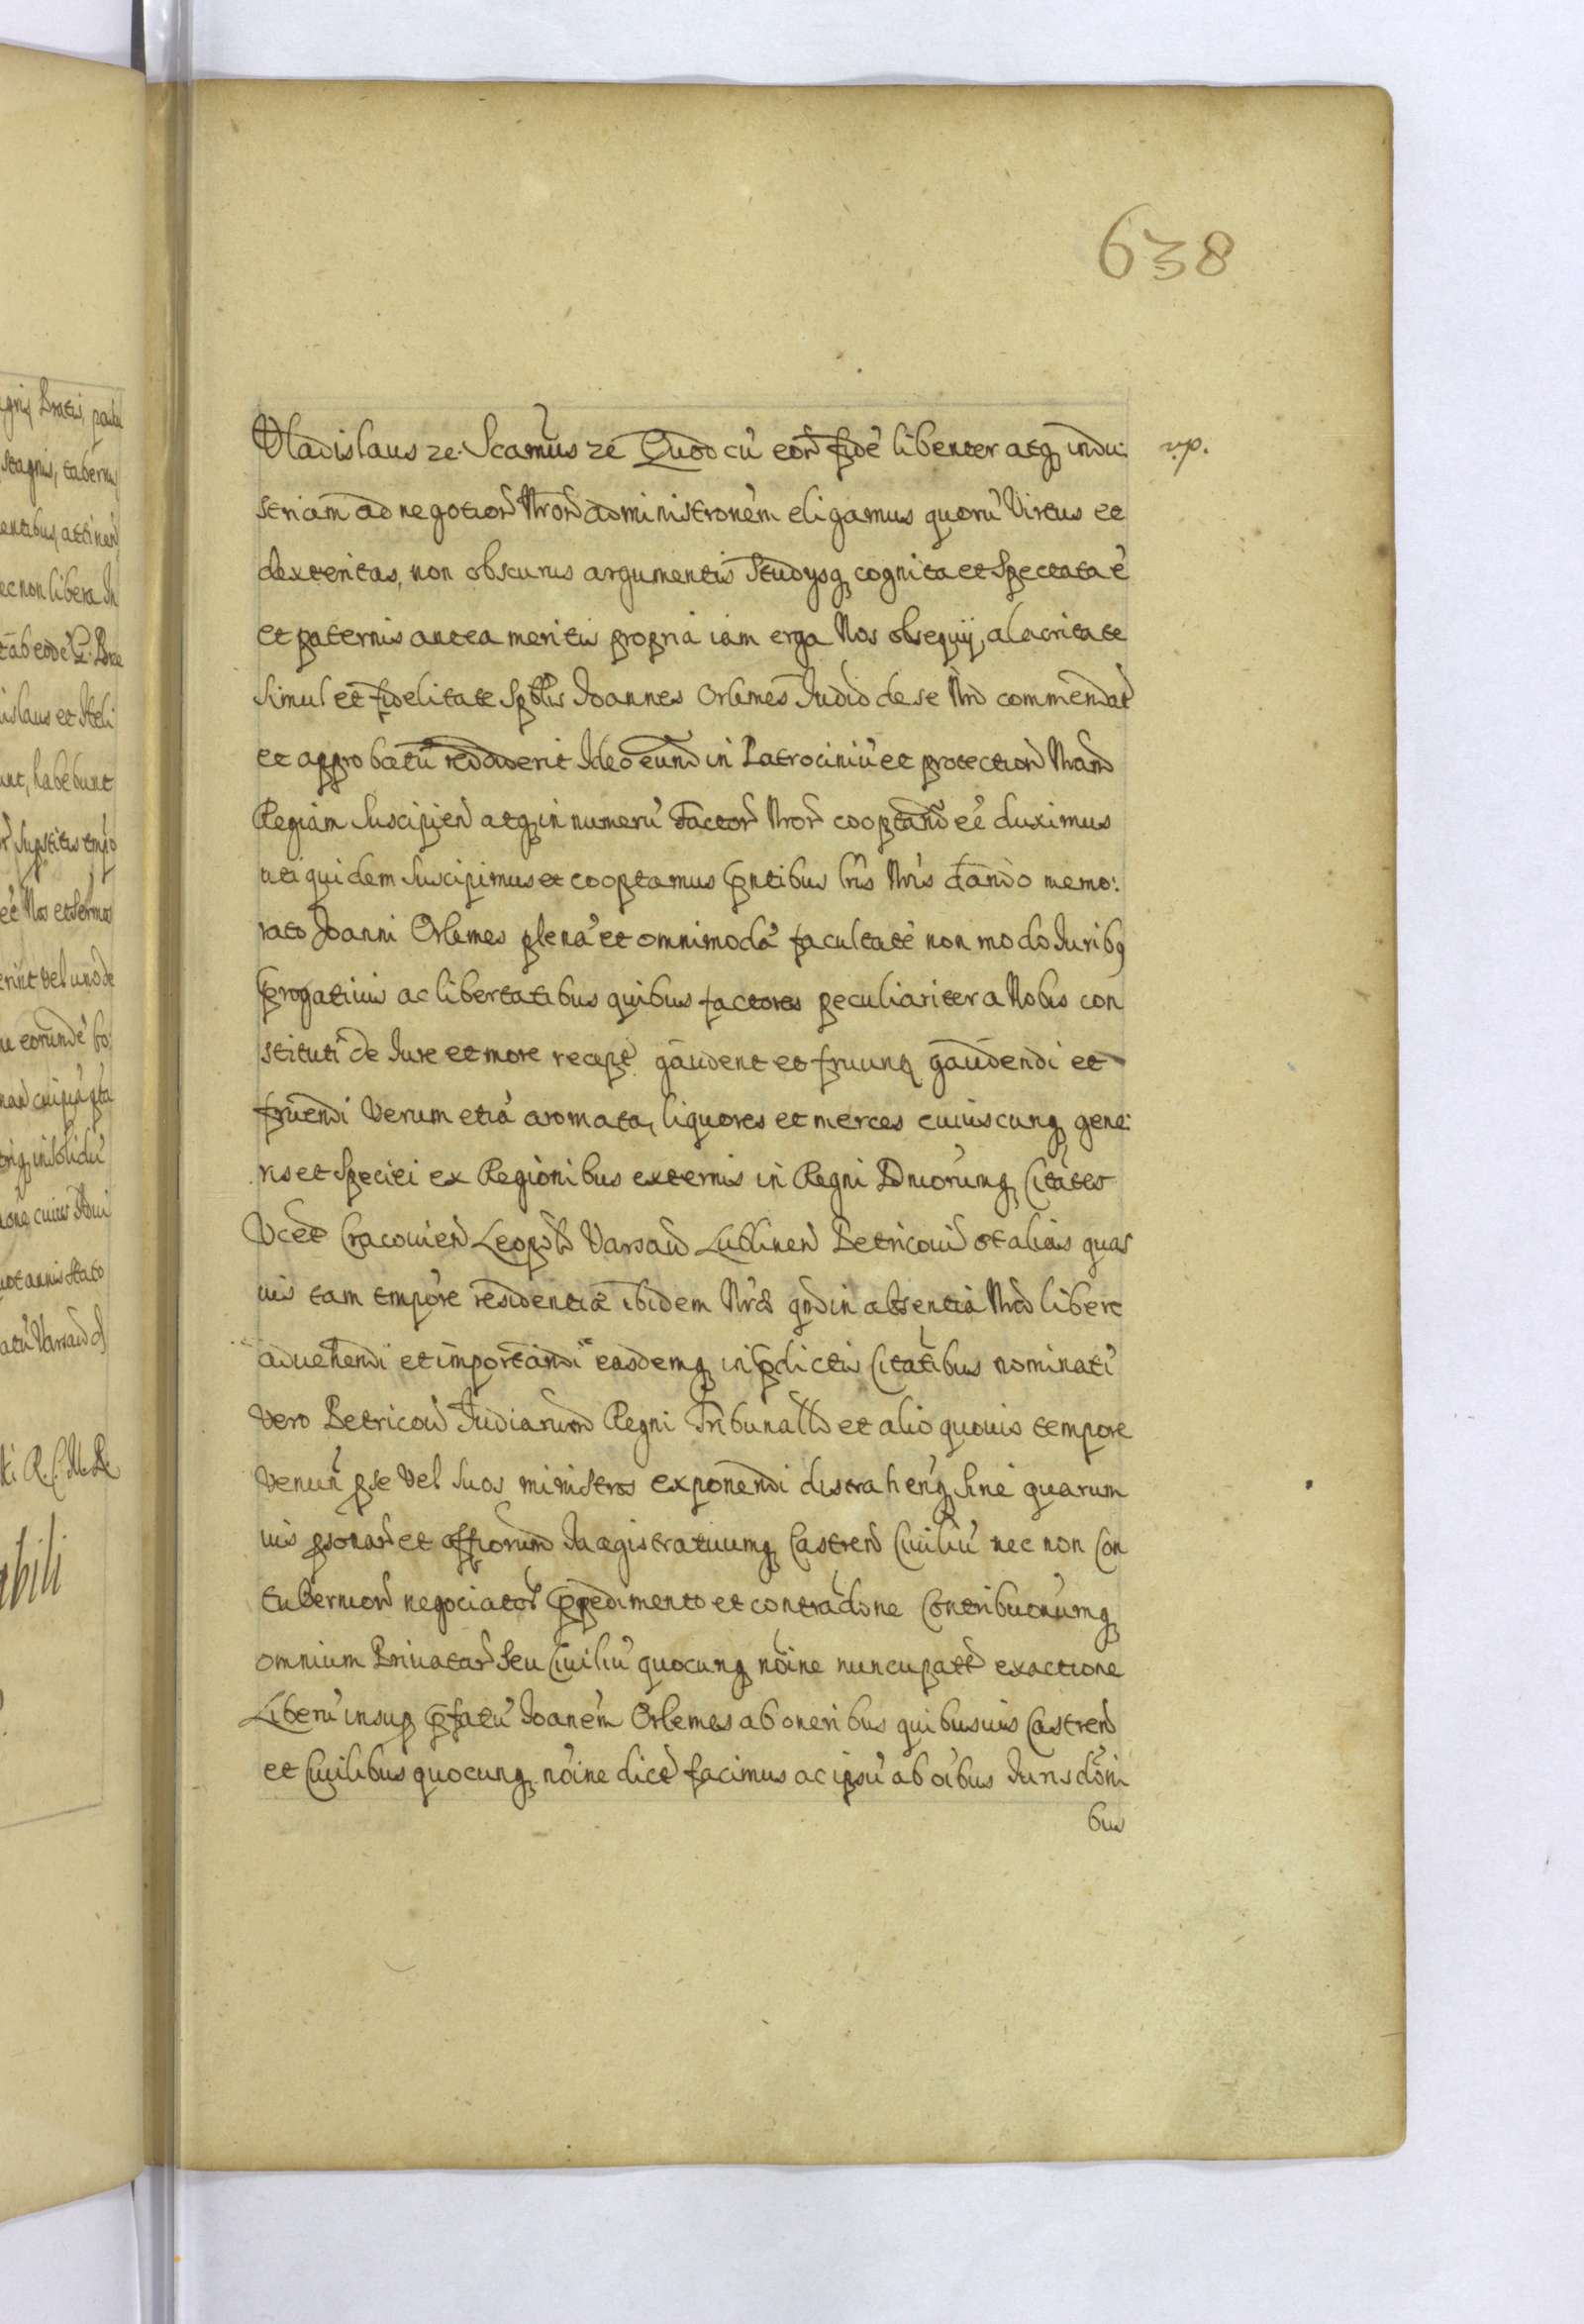 638
Vladislaus ze. Scamus ze Quod cũ eor fidẽ libenter atq indu:
v.p.
striam ad negotior Nror administronem eligamus quorũ Virtus et
dexteritas, non obscuris argumentis Studysq cognita et spectata ẽ
et paternis antea meritis propria iam erga Nos obsequij, alacritate
simul et fidelitate Sptlis Joannes Orlemes Judio de se Nro commendat
et approbatũ reddiderit Ideo eund in Patrociniũ et protection Nram
Regiam Suscipien atq in numerũ Factor Nror cooptand eẽ duximus
uti quidem suscipimus et cooptamus pntibus lris Nris dando memo:
rato Joanni Orlemes plenã et omnimodã facultatẽ non modo Juribq
prrogatiuis ac libertatibus quibus factores peculiariter a Nobis con
stituti de Jure et more recept gaudent et fruunt gaudendi et
fruendi Verum etiã aromata, liquores et merces cuiuscunq gene:
ris et speciei ex Regionibus externis in Regni Dniorumq Citates
Vcet Cracouien Leopold Varsau Lublinen Petricouien et alias quas
uis tam tempore residentiæ ibidem Nræ qndin absentia Nra libere
aduehendi et importandi easdemq in pdictis Citatibus nominatĩ
vero Petricou Judiciorum Regni Tribunalld et alio quouis tempore
Venun pse Vel suos ministros exponendi distrahenq sine quarum
uis psonar et officiorum Magistratuumq Castren Ciuiliũ nec non Con
tubernior negociator ppedimento et contradone Contribuonumq
omnium Priuatar seu Ciuiliũ quocunq noine nuncupatt exactione
Liberũ insup pfatũ Joanem Orlemes ab oneribus quibusuis Castren
et Ciuilibus quocunq noine dict facimus ac ipsũ ab oibus Jurisdoni
bus